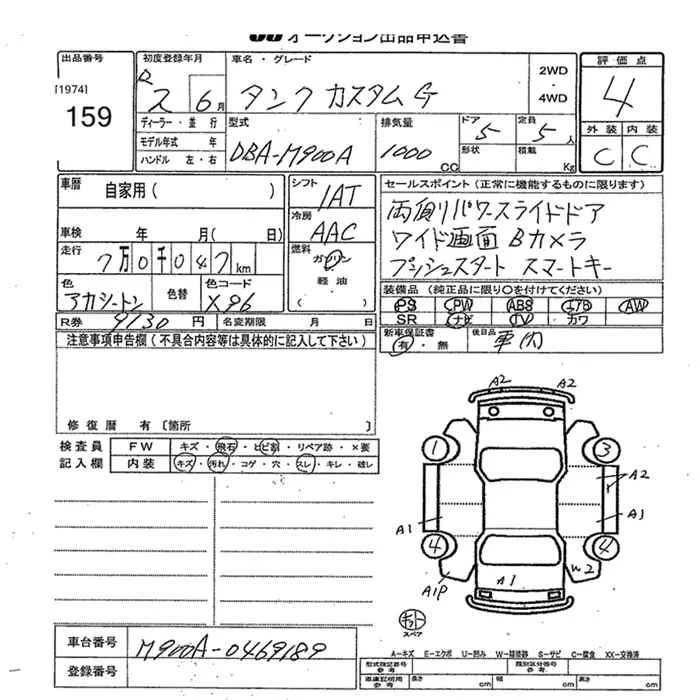 オークション出品申込書
出品番号
[1974]
159
初度登録年月
R 2 6月
車名・グレード
タンク カスタムG
2WD
・
4WD
評価点
4
外装 内装
C C
ディーラー・並行
モデル年式 年
ハンドル 左・右
型式
DBA-M900A
排気量
1000 CC
ドア 5
形状
定員 5人
積載 Kg
車歴
自家用( )
車検 年 月( 日)
走行
7万0千047km
色
色替
色コード
X96
シフト
IAT
冷房
AAC
燃料
ガソリン
軽油
( )
セールスポイント(正常に機能するものに限ります)
両側パワースライドドア
ワイド画面 Bカメラ
プッシュスタート スマートキー
装備品(純正品に限り○を付けてください)
PS PW ABS エアB AW
SR ナビ TV カワ
R券 9130円
名変期限 月 日
新車保証書
有・無
後日品
注意事項申告欄(不具合内容等は具体的に記入して下さい)
修復歴 有〔箇所 〕
検査員
記入欄
FW キズ・飛石・ヒビ割・リペア跡・×要
内装 キズ・汚れ・コゲ・穴・スレ・キレ・破レ
A2 A2
1 3
A2
A1 A1
4 4
A1P A1 W2
スペア
車台番号
M900A-0469189
登録番号
A-キズ E-エクボ U-凹み W-補修跡 S-サビ C-腐食 XX-交換済
型式指定番号
参考
類別区分番号
参考
車庫証明用
参考
長さ cm
幅 cm
高さ cm